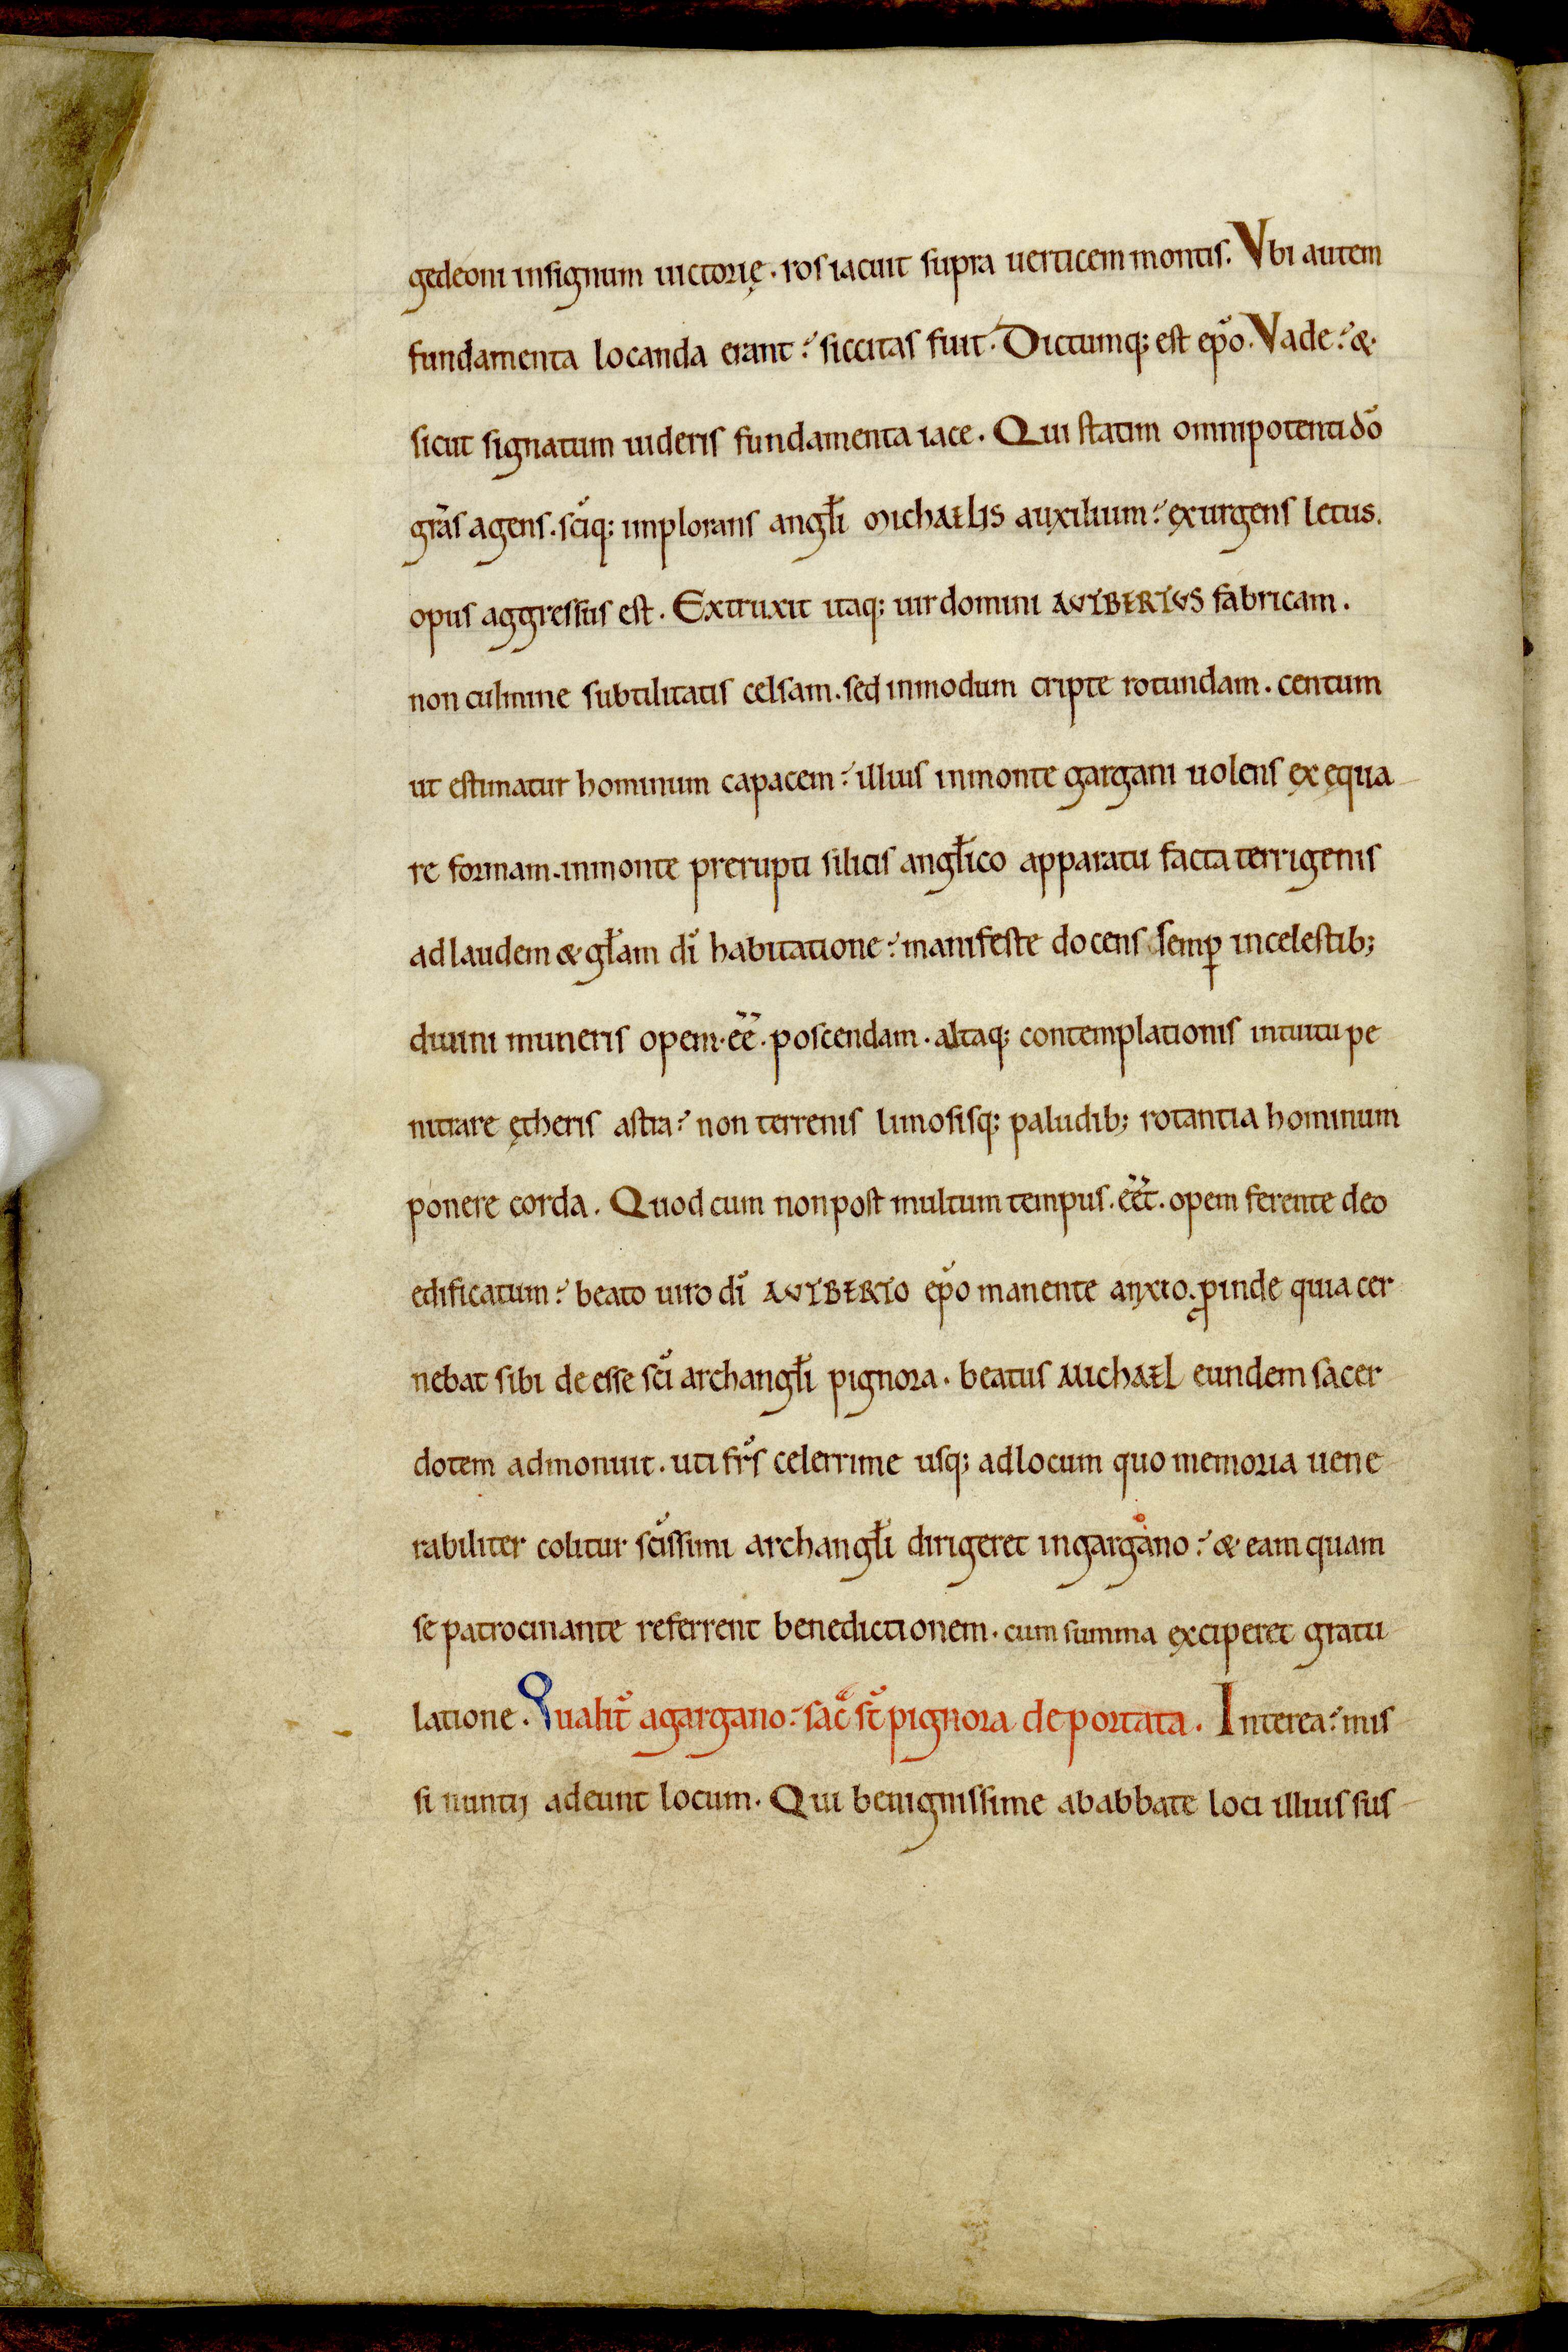 gedeoni insignum uictorię. ros iacuit supra uerticem montis. Vbi autem
fundamenta locanda erant? siccitas fuit. Dictumq; est ep̃o. Vade? &
sicut signatum uideris fundamenta iace. Qui statim omnipotenti dõ
grãs agens. sc̃iq; implorans angl̃i MIchAELIS auxilium? ęxurgens letus.
opus aggressus est. Extruxit itaq; uir domini AVTBERTVS fabricam.
non culmine subtilitatis celsam. sed inmodum cripte rotundam. centum
ut estimatur hominum capacem? illius inmonte gargani uolens ęx ęqua
re formam. inmonte prerupti silicis angl̃ico apparatu facta terrigenis
ad laudem & gl̃am dĩ habitatione? manifeste docens semp̱ incelestib;
diuini muneris opem. ẽẽ. poscendam. altaq; contemplationis intuitu pe
nitrare ętheris astra? non terrenis limosisq; paludib; rotantia hominum
ponere corda. Quod cum non post multum tempus. ẽẽt. opem ferente deo
edificatum? beato uiro dĩ AVTBERTO ep̃o manente anxio. ꝓinde quia cer
nebat sibi de esse sc̃i archangl̃i pignora. beatus MIchAEL eundem sacer
dotem admonuit. uti fr̃s celerrime usq; adlocum quo memoria uene
rabiliter colitur sc̃issimi archangl̃i dirigeret ingargano? & eam quam
se patrocinante referrent benedictionem. cum summa ęxciperet gratu
latione. Qualit̃ agargano? sac̃ st̃ pignora deportata. Interea? mis
si nuntij adeunt locum. Qui benignissime ababbate loci illius sus